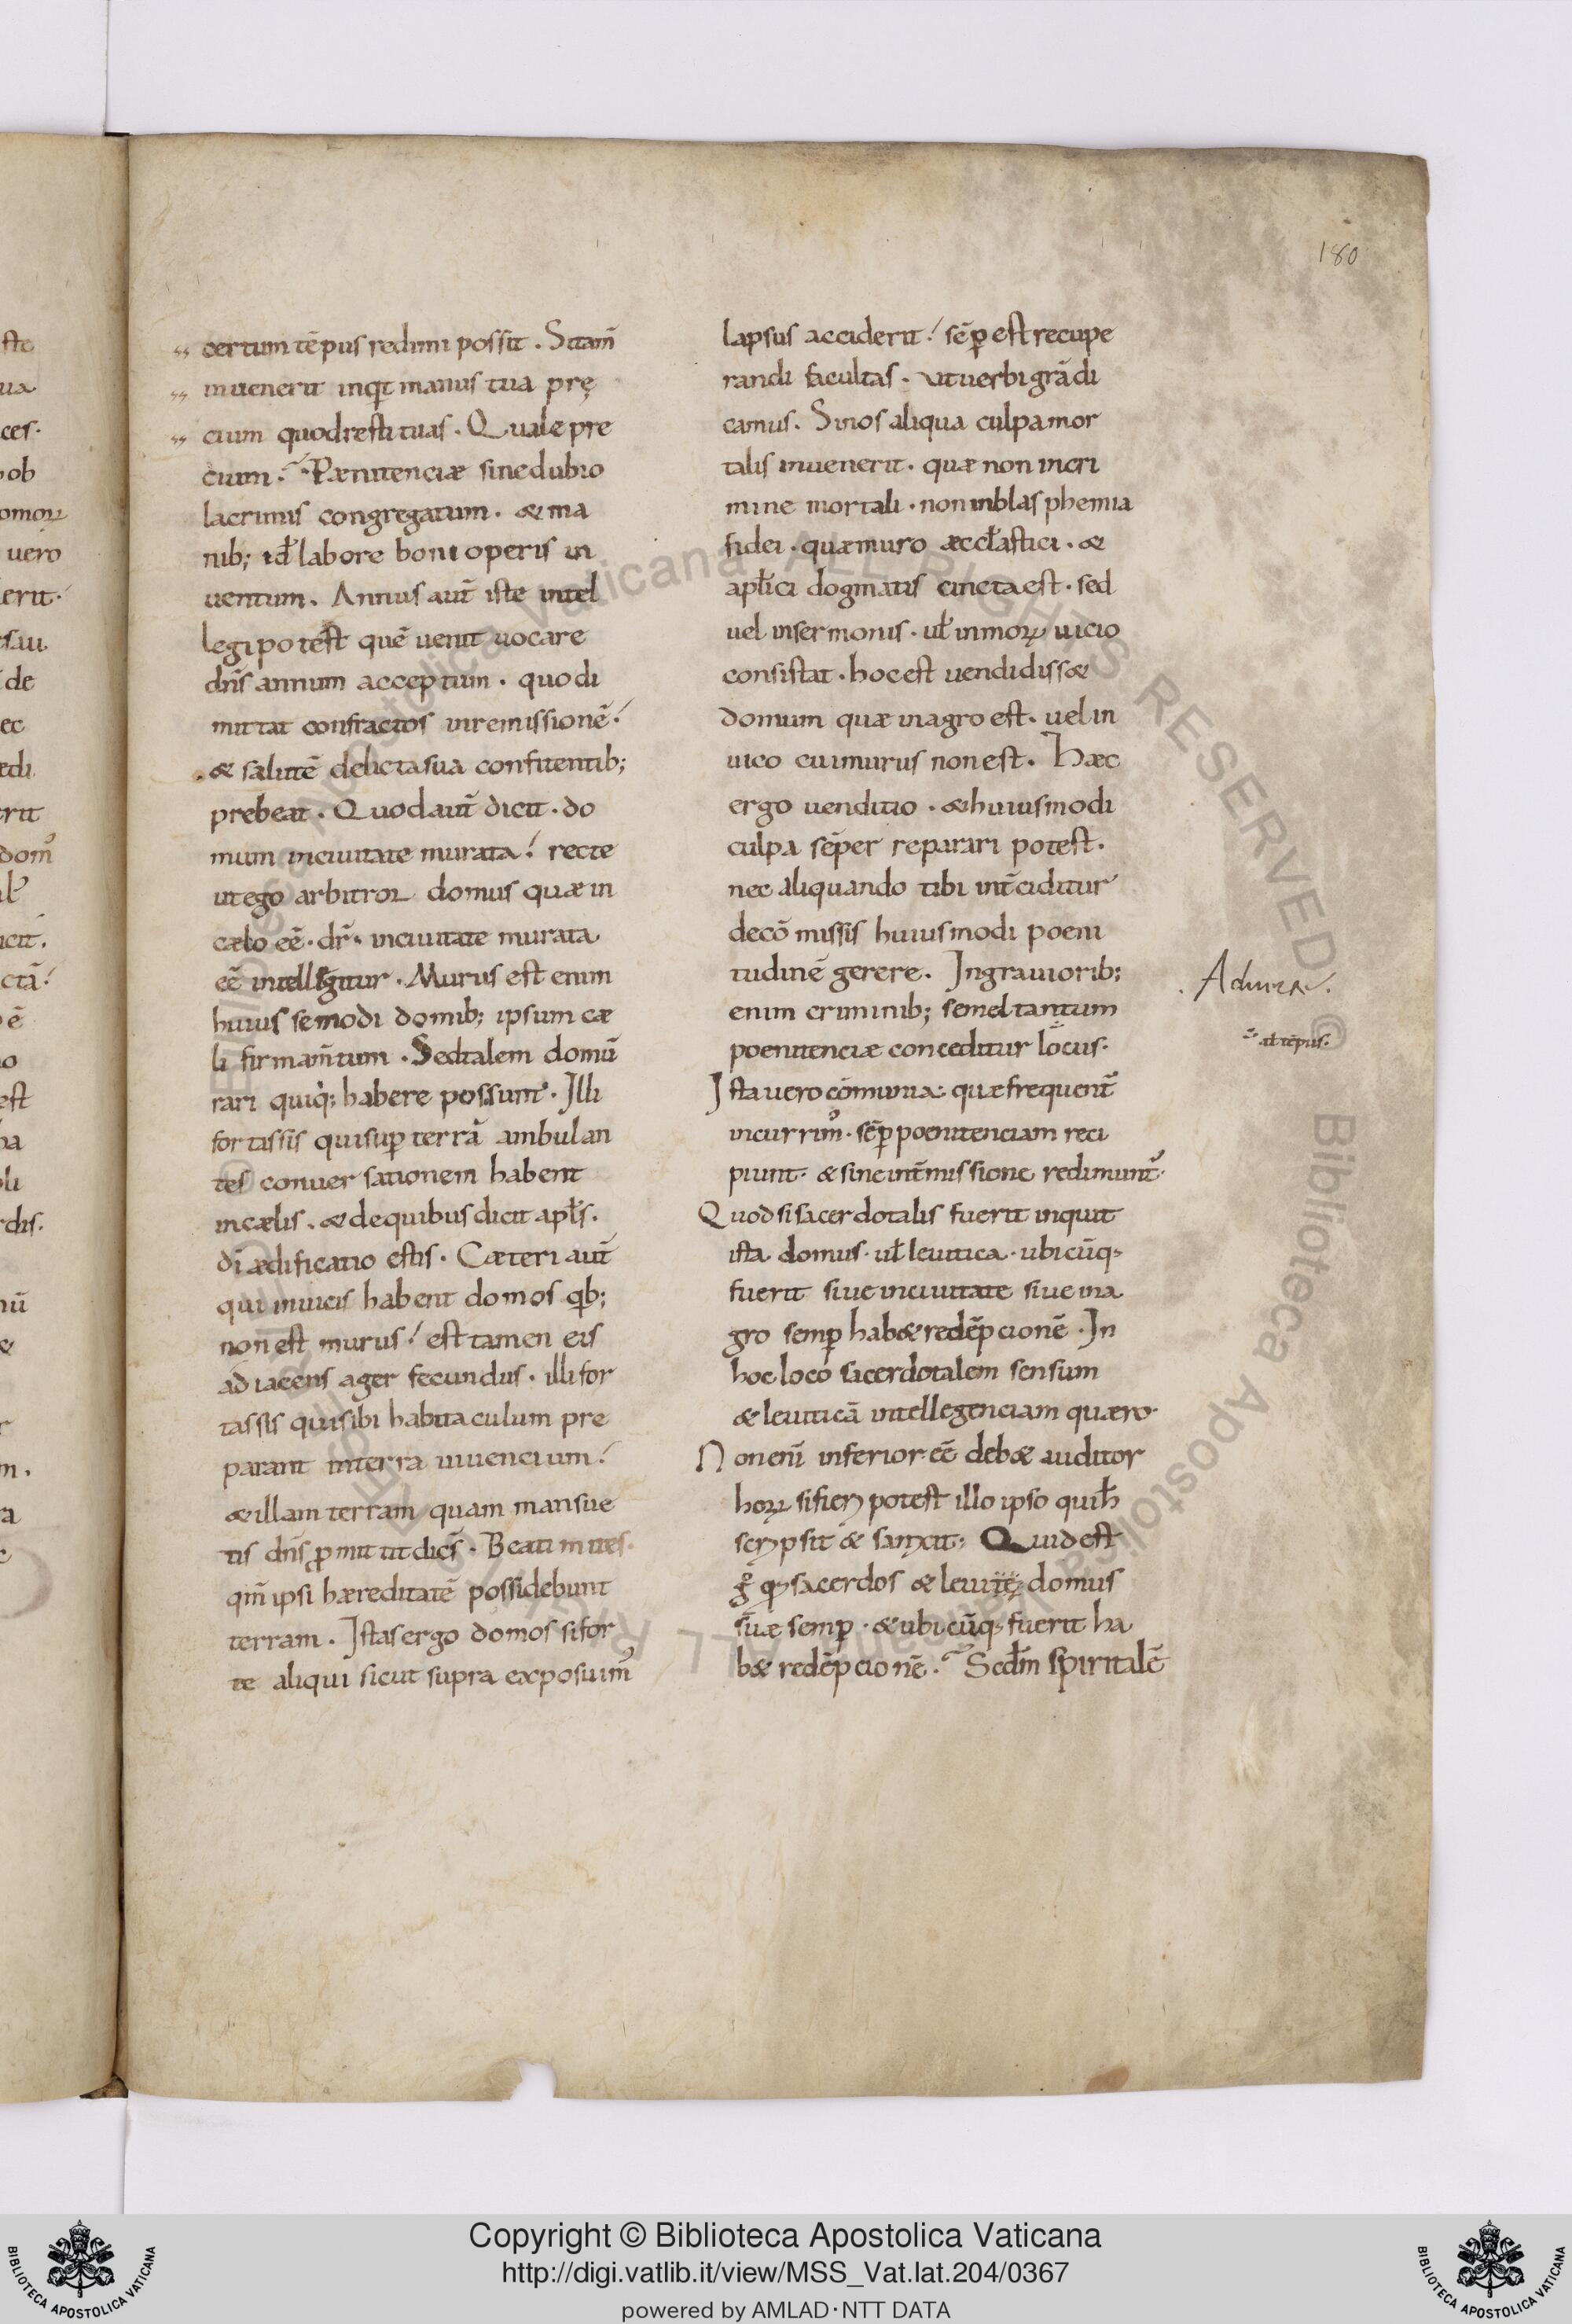 180
certum tēpus redimi possit. Si tam̄
inuenerit inqt manus tua prę
cium quod restituas. Quale pre
cium? Pænitenciæ sine dubio
lacrimis congregatum. & ma
nib; id ̄ labore boni operis in
uentum. Annus aut̄ iste intel
legi potest quē uenit uocare
dn̄s annum acceptum. quo di
mittat confractos in remissionē.
& salutē delicta sua confitentib;
prebeat. Quod aut̄ dicit. do
mum in ciuitate murata! recte
ut ego arbitror domus quæ in
cælo eē. dr̄. in ciuitate murata
eē intellegitur. Murus est enim
huiuscemodi domib; ipsum cæ
li firmam̄tum. Sed talem domū
rari quiq; habere possunt. Illi
fortassis qui sup terrā ambulan
tes conuersationem habent
in cælis. & de quibus dicit apl̄s.
dī ædificatio estis. Cæteri aut̄
qui in uicis habent domos qb;
non est murus! est tamen eis
adiacens ager fecundus. illi for
tassis qui sibi habitaculum pre
parant in terra uiuencium!
& illam terram quam mansue
tis dn̄s ꝓmittit dicēs. Beati mites.
qm̄ ipsi hæreditatē possidebunt
terram. Istas ergo domos si for
te aliqui sicut supra exposuim᾿
lapsus acciderit! sēꝑ est recupe
randi facultas. ut uerbi grā di
camus. Si nos aliqua culpa mor
talis inuenerit. quæ non in cri
mine mortali. non in blasphemia
fidei. quæ muro æccl̄astici. &
apl̄ici dogmatis cincta est. sed
uel in sermonis. ul̄ in moꝝ uicio
consistat. hoc est uendidiss&
domum quæ in agro est. uel in
uico cui murus non est. Hæc
ergo uenditio. & huiusmodi
culpa sēper reparari potest.
nec aliquando tibi int̄ciditur
de cō missis huiusmodi poeni
tudinē gerere. In grauiorib;
enim criminib; semel tantum
poenitenciæ conceditur locus.
Ista uero cōmunia quæ frequent̄
incurrim᾿. sēꝑ poenitenciam reci
piunt. & sine int̄missione redimunt᾿.
Quod si sacerdotalis fuerit inquit
ista domus. ul̄ leuitica. ubicūq;
fuerit siue in ciuitate siue in a
gro semꝑ hab& redēpcionē. In
hoc loco sacerdotalem sensum
& leuiticā intellegenciam quæro.
Non eni inferior eē deb& auditor
hoꝝ si fieri potest illo ipso qui h̄
scripsit & sanxit. Quid est
g̊ qđ sacerdos & leuitę domus
suæ semꝑ. & ubicūq; fuerit ha
b& redēpcionē. Scd̄m spiritalē
. al tēpus.
Copyright © Biblioteca Apostolica Vaticana
http://digi.vatlib.it/view/MSS_Vat.lat.204/0367
powered by AMLAD·NTT DATA
BIBLIOTECA APOSTOLICA VATICANA
BIBLIOTECA APOSTOLICA VATICANA